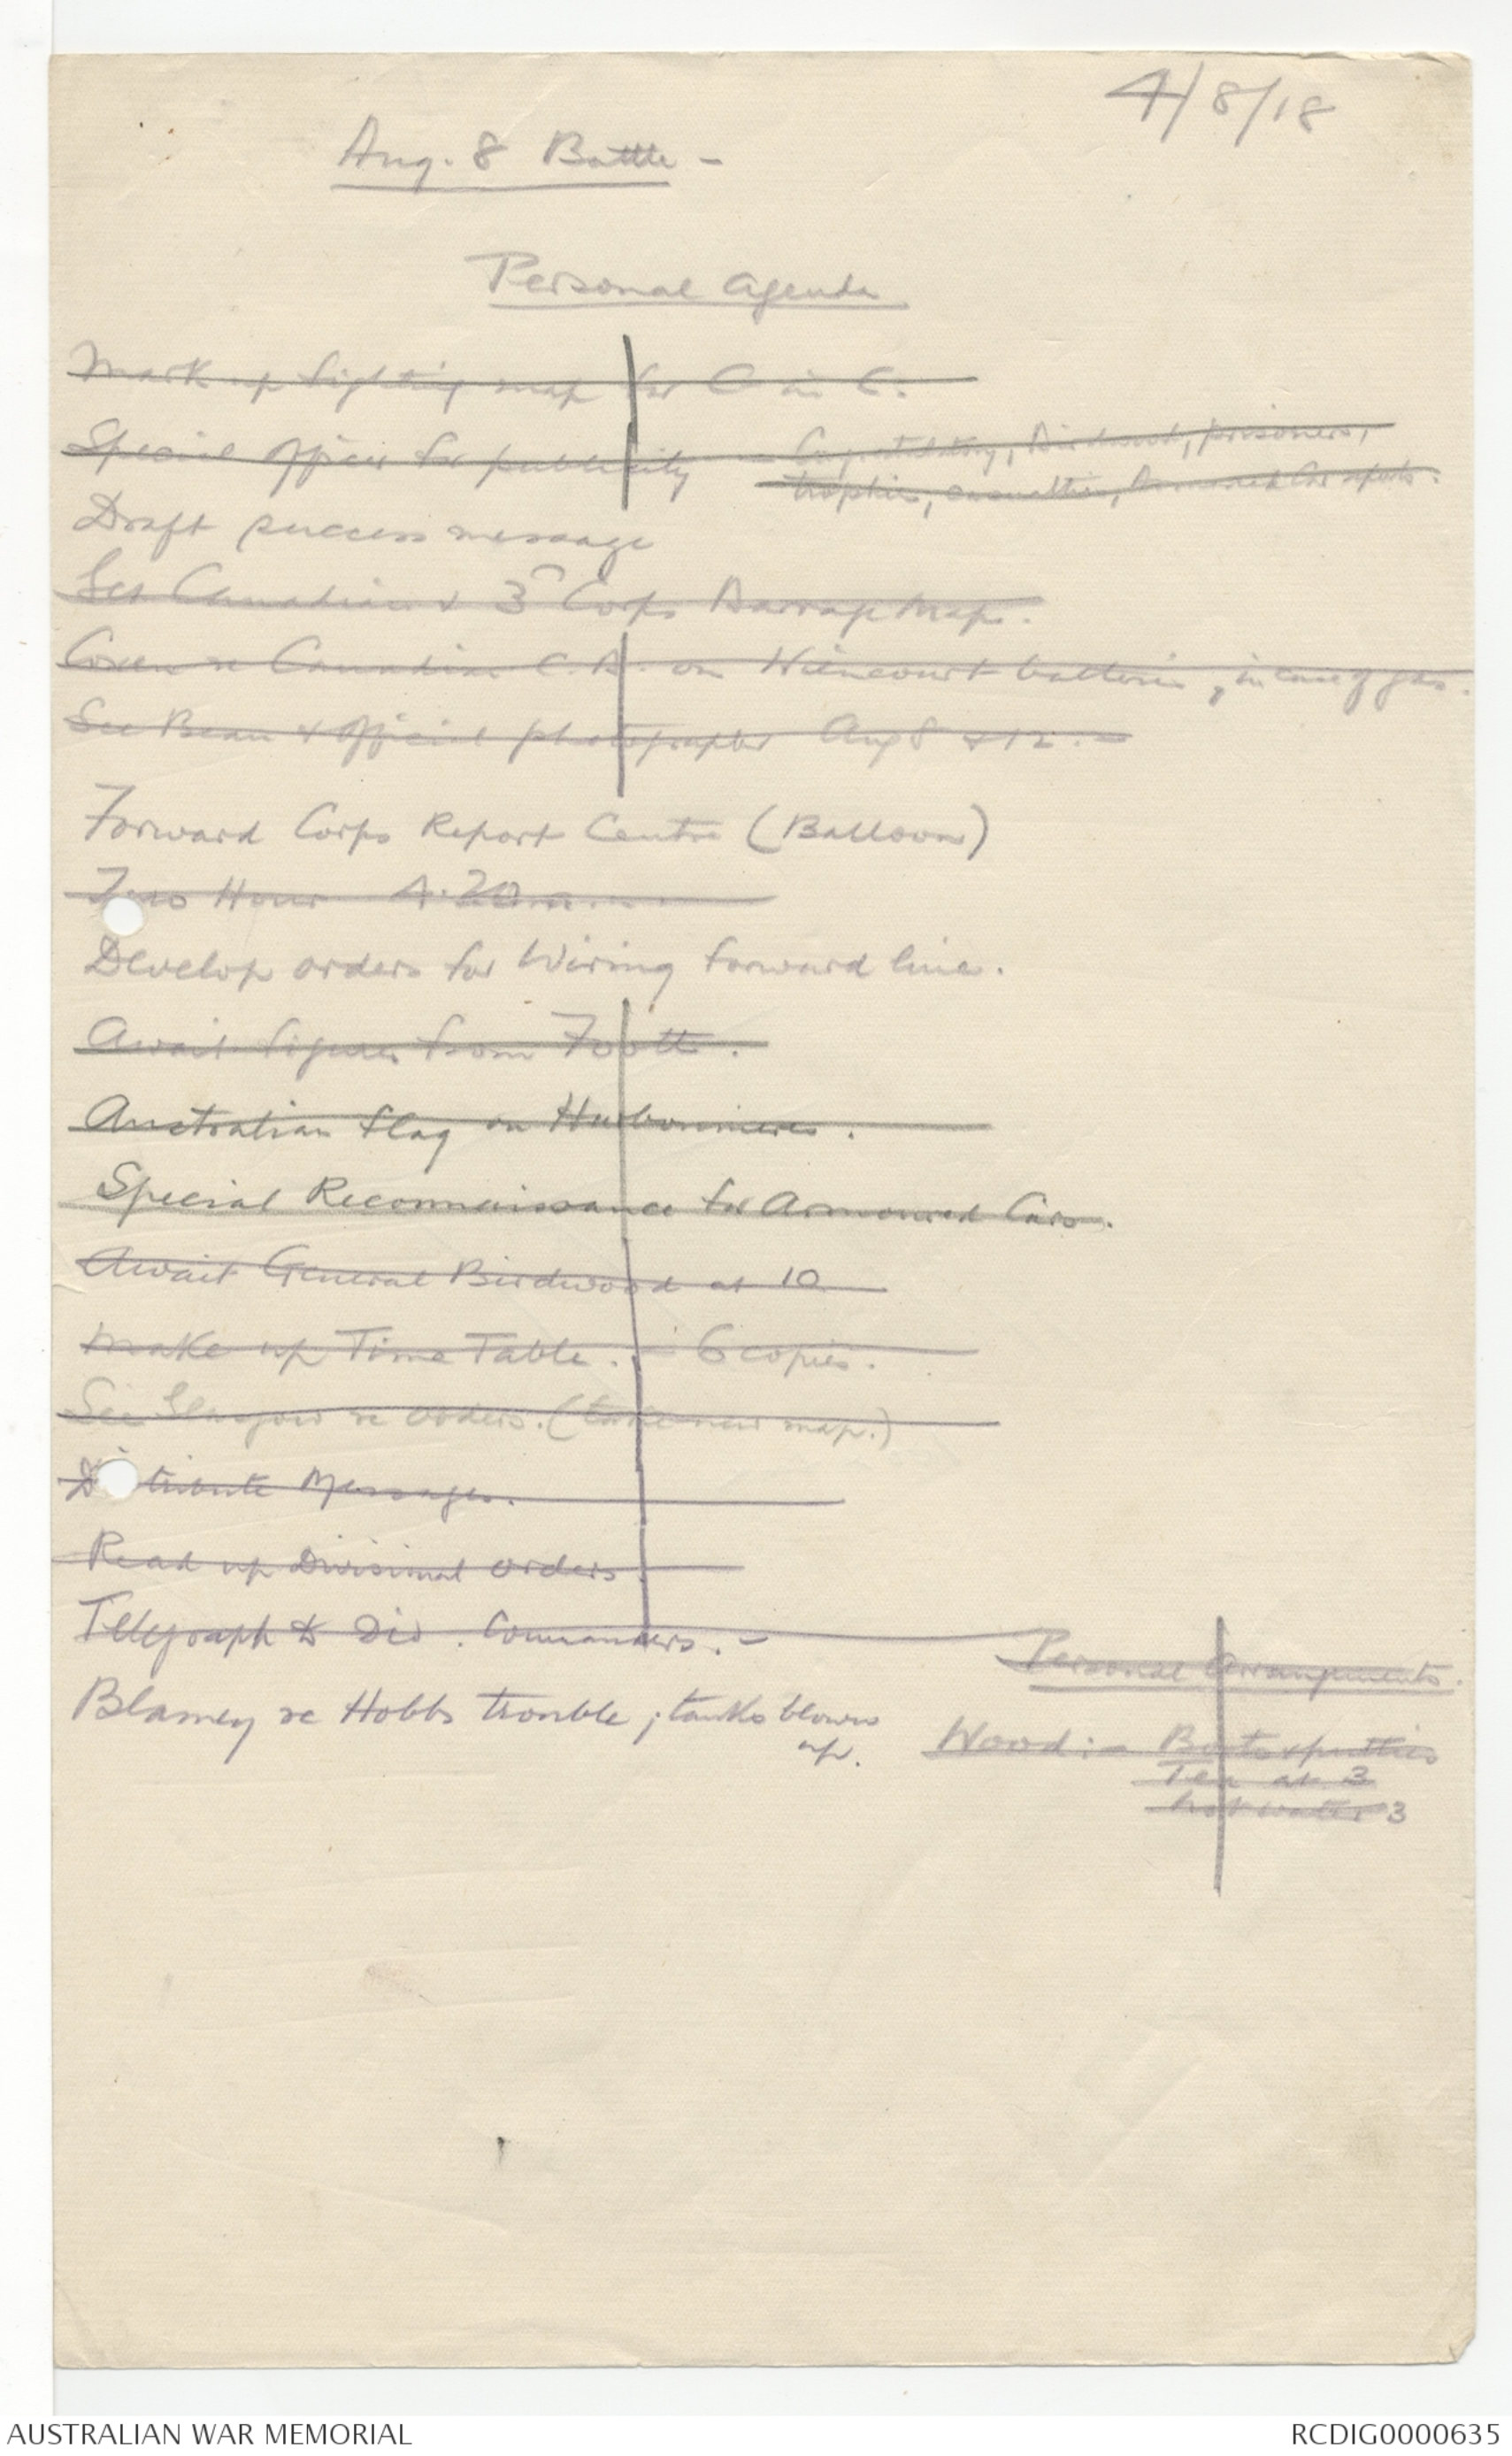 4/8/18
Aug. 8 Battle -
Personal Agenda
Mark up fighting map for C in C.
Special Officer for publicity - Birdwood, prisoners,
trophies, casualties, Armoured Car reports.
Draft success message
Get Canadian & 3rd Corps Barrage Maps.
Coxen re Canadian C.B. on Wiencourt batteries, in case of gas.
See Bean & Official photographer Aug 8 & 12. -
Forward Corps Report Centre (Balloon)
Zero Hour 4.20 a.m.
Develop orders for Wiring forward line.
Await figures from Foott.
Australian flag on Harbonnieres.
Special Reconnaissance for Armoured Cars.
Await General Birdwood at 10
Make up Time Table. - 6 copies.
See Glasgow re orders. (take new map.)
Distribute Messages.
Read up Divisional orders
Telegraph to Div. Commanders. -
Blamey re Hobbs trouble; tanks blown
up.
Personal Arrangements.
Wood: - Boots & putties
Tea at 3
hot water 3
AUSTRALIAN WAR MEMORIAL
RCDIG0000635